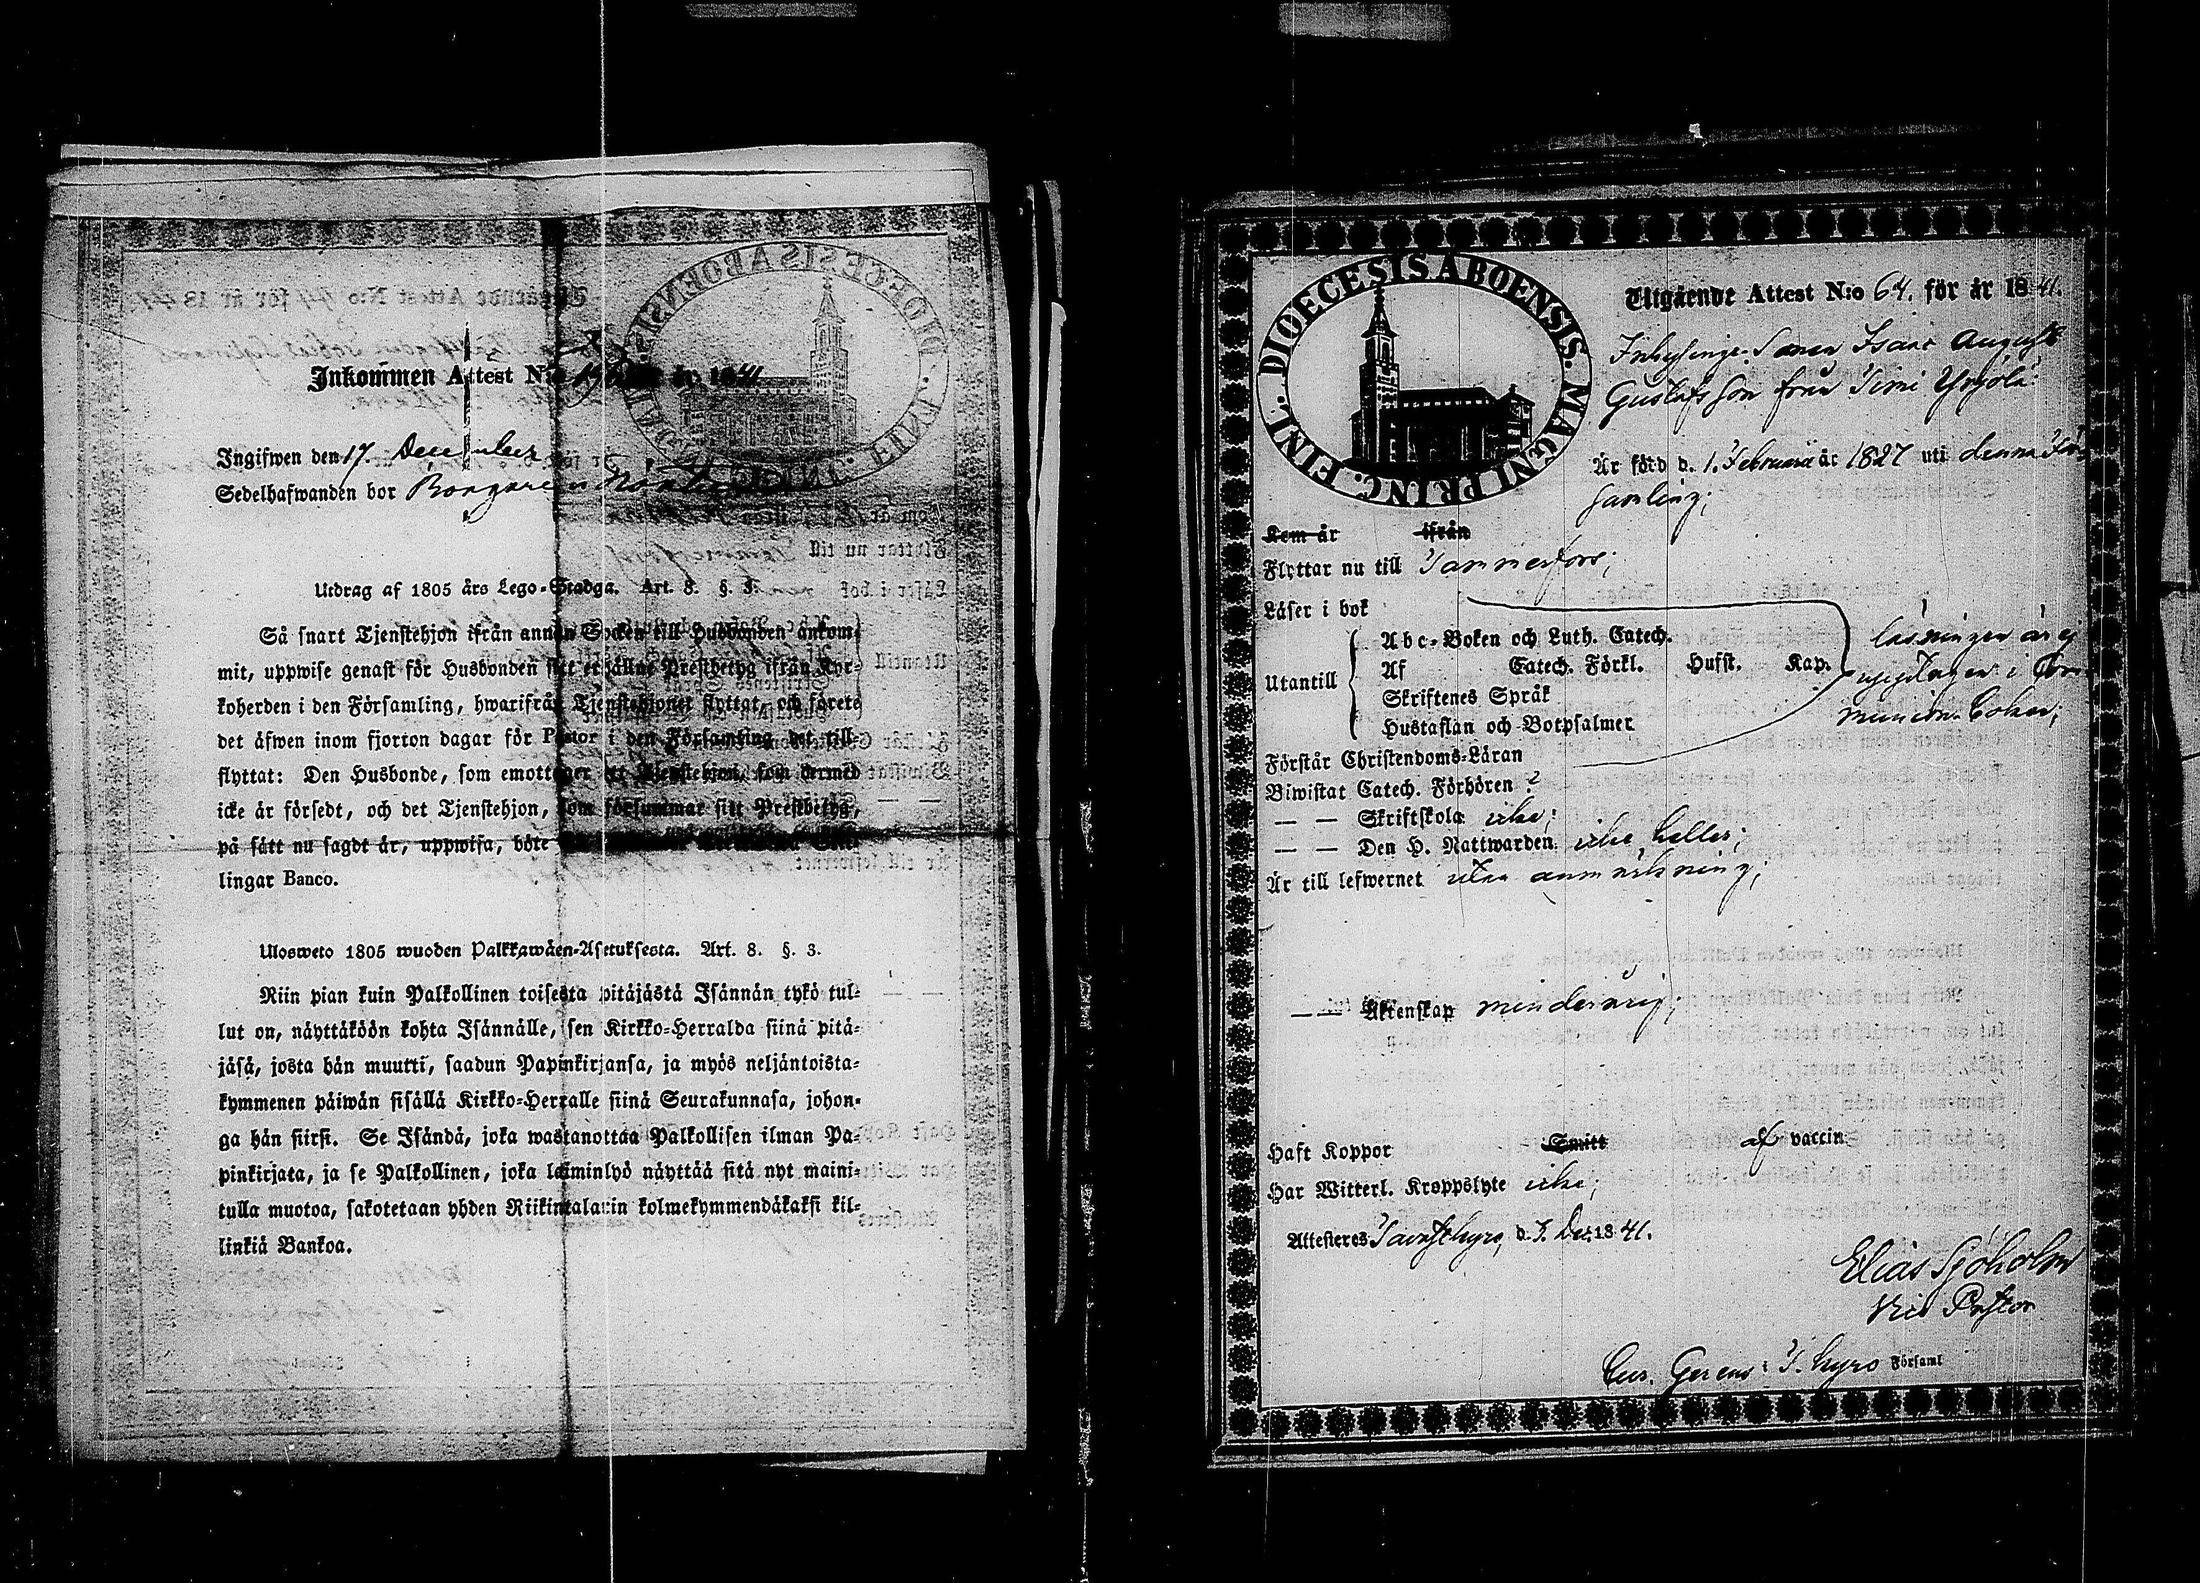 Inkommen Attest N:o år 1841
Ingifwen den 17 December
Sedelhafwanden bor
Utdrag af 1805 års Lego-Stadga. Art. 8. §. 3.
Så snart Tjenstehjon ifrån annan Socken till Husbonden ankom-
mit, uppwise genast för Husbonden sitt erhållne Prestbetyg ifrån Kyr-
koherden i den Församling, hwarifrån Tjenstehjonet flyttat, och förete
det äfwen inom fjorton dagar för Pastor i den Församling det till-
flyttat: Den Husbonde, som emottager ett Tjenstehjon, som dermed
icke är försedt, och det Tjenstehjon, som försummar sitt Prestbetyg,
på sätt nu sagdt är, uppwisa, böte
lingar Banco.
Ulosweto 1805 wuoden Palkkawäen-Asetuksesta. Art. 8. §. 3.
Niin pian kuin Palkollinen toisesta pitäjästä Isännän tykö tul-
lut on, näyttäköön kohta Isännälle, sen Kirkko-Herralda siinä pitä-
jäsä, josta hän muutti, saadun Papinkirjansa, ja myös neljäntoista-
kymmenen päiwän sisällä Kirkko-Herralle siinä Seurakunnasa, johon-
ga hän siirsi. Se Isändä, joka wastanottaa Palkollisen ilman Pa-
pinkirjata, ja se Palkollinen, joka laiminlyö näyttää sitä nyt maini-
tulla muotoa, sakotetaan yhden Riikintalarin kolmekymmendäkaksi kil-
linkiä Bankoa.
DIOECESIS ABOENSIS. MAGNI PRINC. FINL.
Utgående Attest N:o 64. för år 1841.
Inhysinge Sonen Isaac August
Gustafsson från Timi Yrjölä
Är född d. 1. Februarii år 1827 uti denna För-
samling;
Kom år ifrån
Flyttar nu till Tammerfors;
Läser i bok
Utantill
Abc-Boken och Luth. Catech.
Af Catech. Förkl. Hufst. Kap.
Skriftenes Språk
Hustaflan och Botpsalmer
läsningen är ej
upptagen i Com-
munion-Boken;
Förstår Christendoms-Läran
Biwistat Catech. Förhören ?
— — Skriftskola icke;
— — Den H. Nattwarden icke heller;
Är till lefwernet utan anmärkning;
— — Äktenskap minderårig;
Haft Koppor Smitt af vaccin
Har Witterl. Kroppslyte icke;
Attesteres Tavastkyro, d. 7. Dec. 1841.
Elias Sjöholm
Vice Pastor
Cur. Gerens i T. kyro Församl